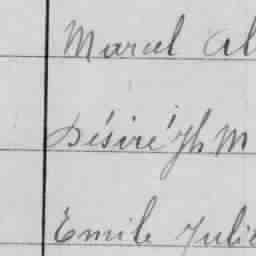 Marcel Al
Désiré Jh M
Emile Julie